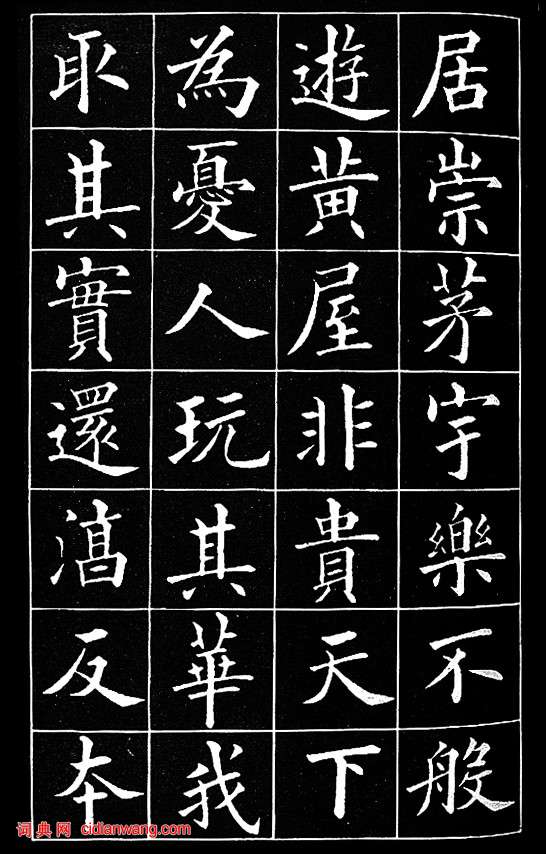 居崇茅宇樂不般
遊黃屋非貴天下
為憂人玩其華我
取其實還淳反本
词典网 cidianwang.com